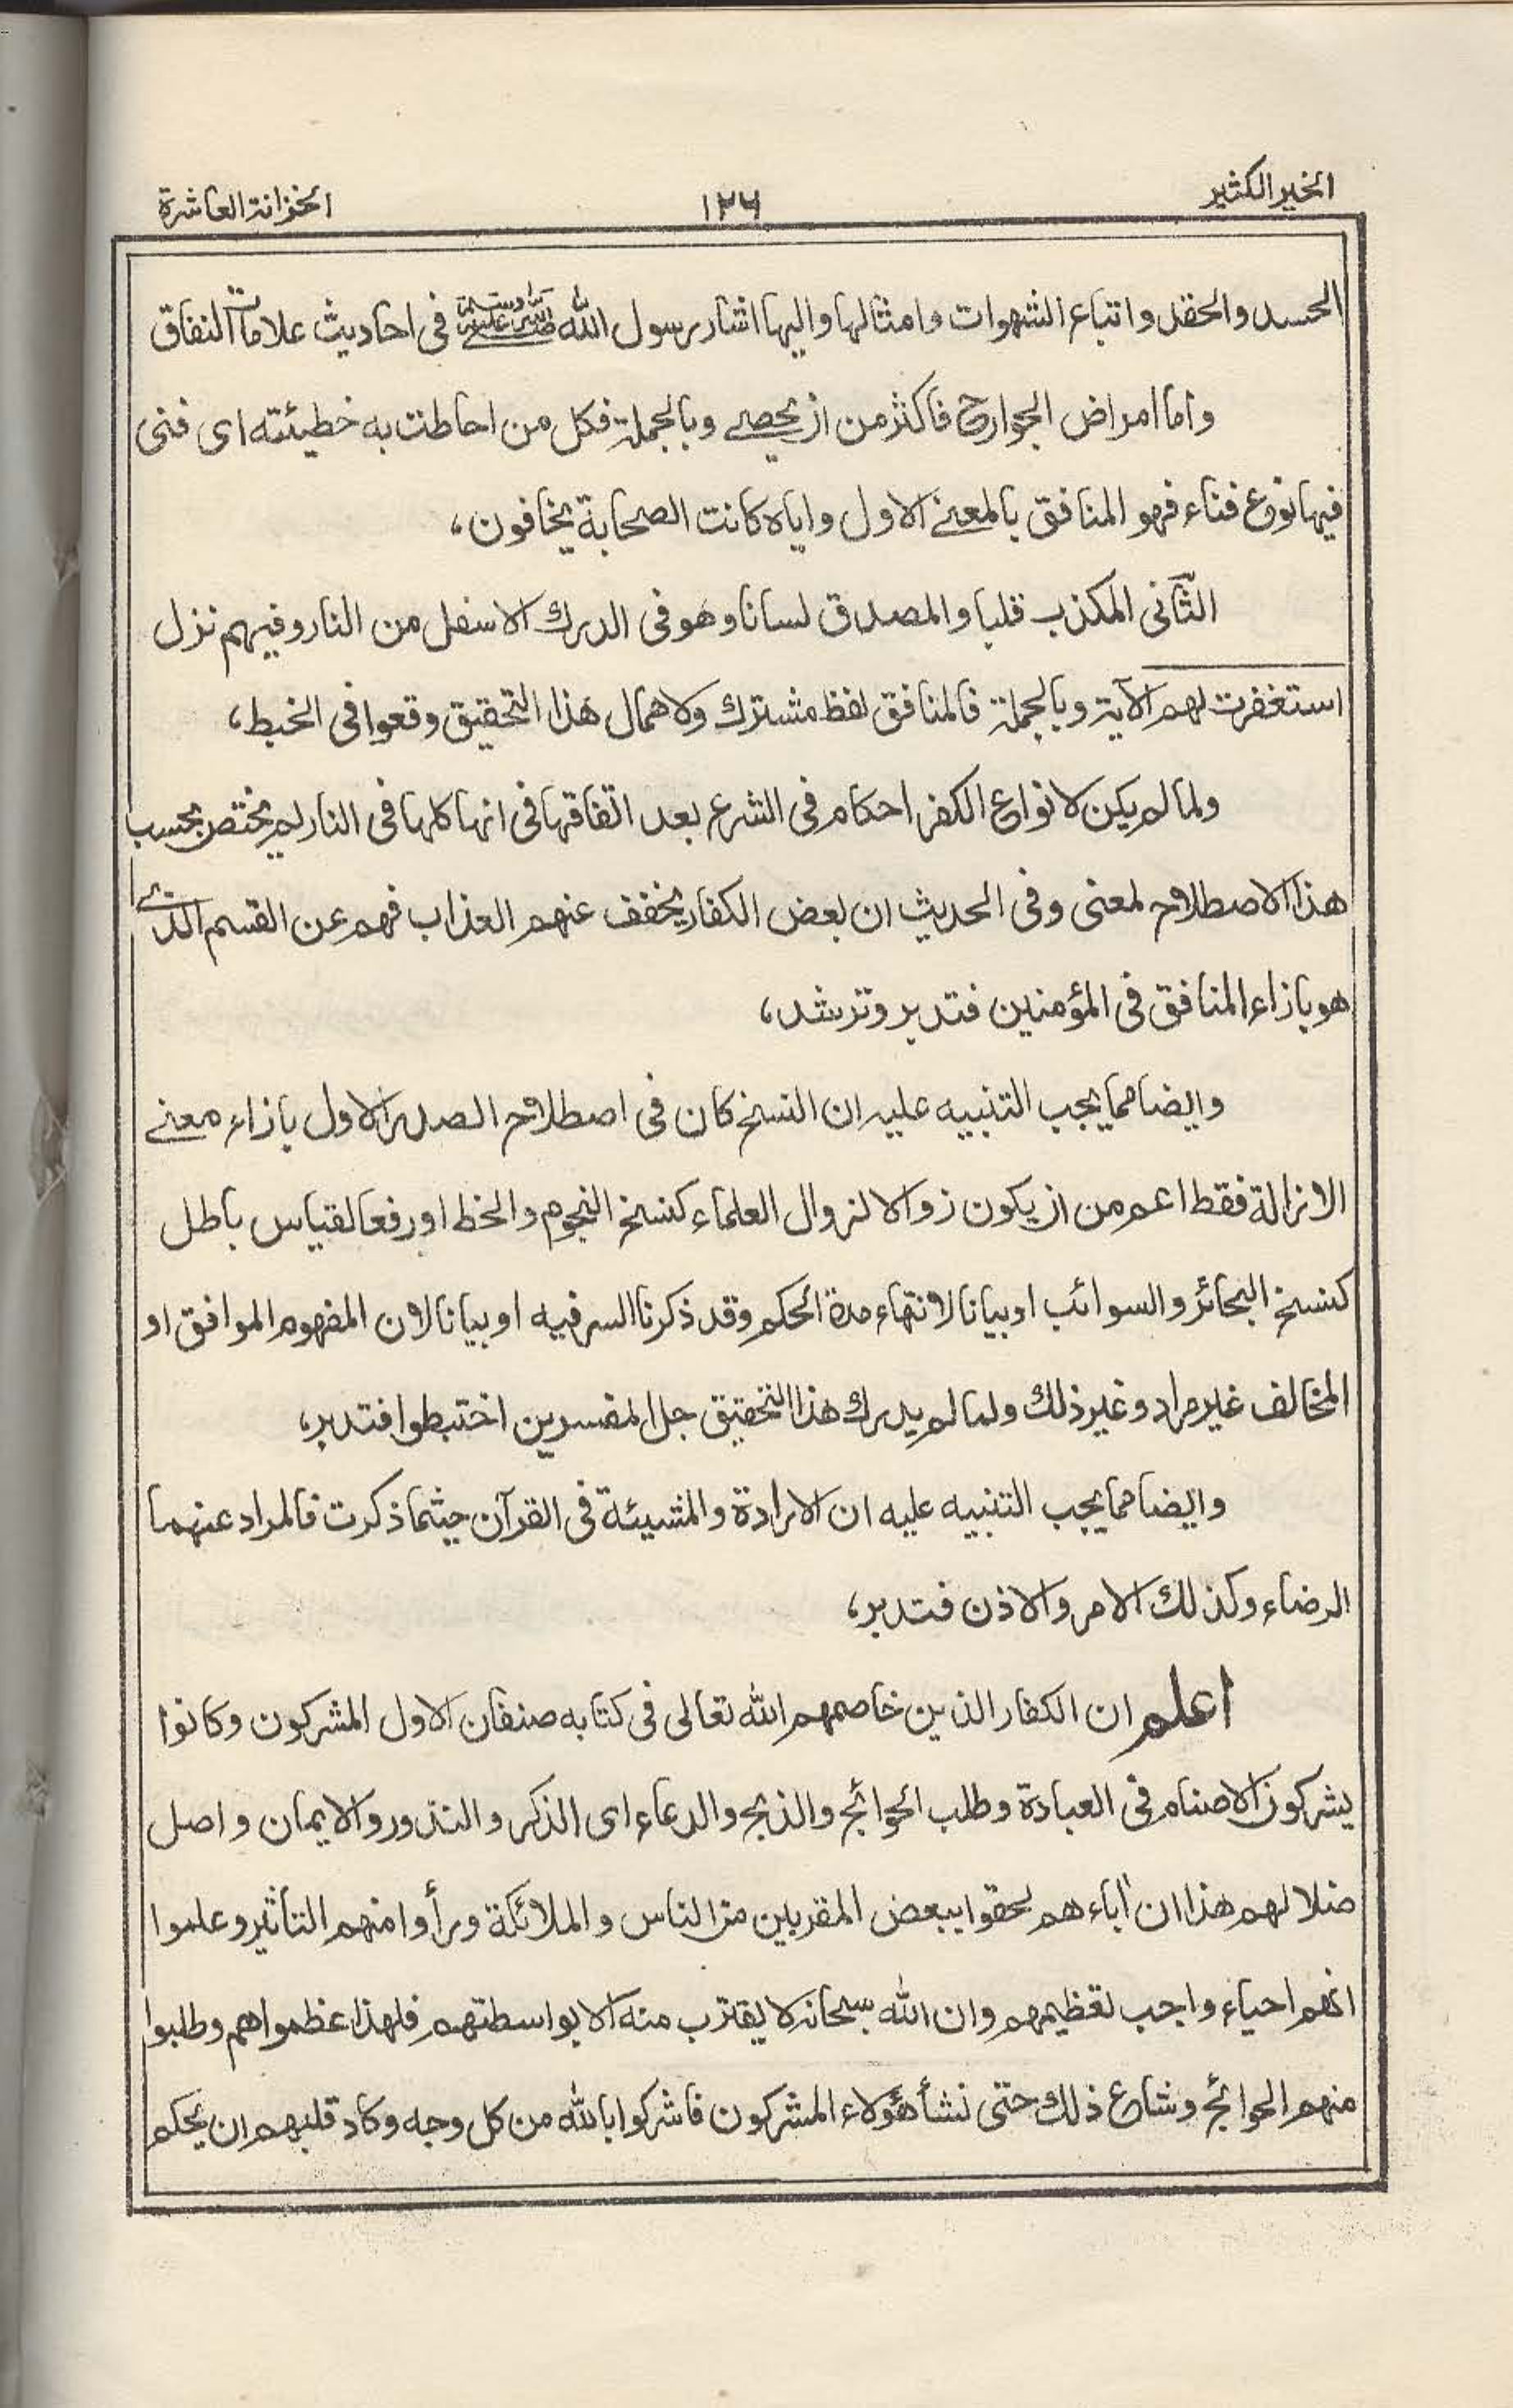 الخير الكثير
١٢٦
الخزانة العاشرة
الحسد والحقد واتباع الشهوات وامثالها واليها اشار رسول الله صلى الله عليه وسلم فى احاديث علامات النفاق
واما امراض الجوارح فاكثر من ان يحصے وبالجملة فكل من احاطت به خطيئته اى فنى
فيها نوع فناء فهو المنافق بالمعنے الاول واياه كانت الصحابة يخافون،
الثانى المكذب قلبا والمصدق لسانا وهو فى الدرك الاسفل من النار وفيهم نزل
استغفرت لهم الآية وبالجملة فالمنافق لفظ مشترك ولاهمال هذا التحقيق وقعوا فى الخبط،
ولما لم يكن لانواع الكفر احكام فى الشرع بعد اتفاقها فى انها كلها فى النار لم يختص بحسب
هذا الاصطلاح لمعنى وفى الحديث ان بعض الكفار يخفف عنهم العذاب فهم عن القسم الذے
هو بازاء المنافق فى المؤمنين فتدبر وترشد،
وايضا مما يجب التنبيه عليه ان النسخ كان فى اصطلاح الصدر الاول بازاء معنے
الازالة فقط اعم من ان يكون زوالا لزوال العلماء كنسخ النجوم والخط او رفعا لقياس باطل
كنسخ البحائر والسوائب او بيانا لانتهاء مدة الحكم وقد ذكرنا السر فيه او بيانا لان المفهوم الموافق او
المخالف غير مراد وغير ذلك ولما لم يدرك هذا التحقيق جل المفسرين اختبطوا فتدبر،
وايضا مما يجب التنبيه عليه ان الارادة والمشيئة فى القرآن حيثما ذكرت فالمراد عنهما
الرضاء وكذلك الامر والاذن فتدبر،
اعلم ان الكفار الذين خاصمهم الله تعالى فى كتابه صنفان الاول المشركون وكانوا
يشركون الاصنام فى العبادة وطلب الحوائج والذبح والدعاء اى الذكر والنذور والايمان واصل
ضلالهم هذا ان اٰباءهم لحقوا ببعض المقربين من الناس والملائكة ورأوا منهم التأثير وعلموا
انهم احياء واجب تعظيمهم وان الله سبحانه لا يقترب منه الا بواسطتهم فلهذا عظمواهم وطلبوا
منهم الحوائج وشاع ذلك حتى نشأ هؤلاء المشركون فاشركوا بالله من كل وجه وكاد قلبهم ان يحكم